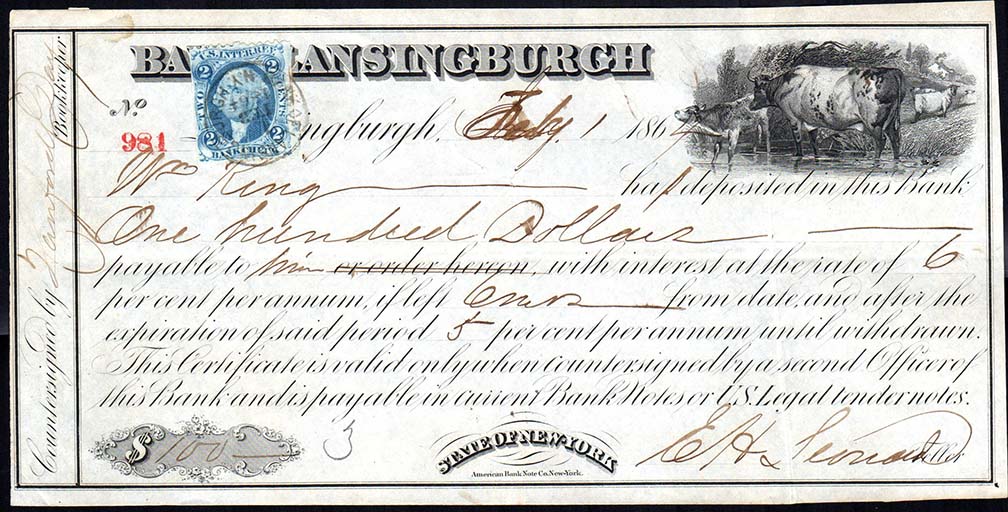 BA LANSINGBURGH
U.S. INTER. REV.
2 2
TWO CENTS
2 2
BANK CHECK
No
981
ingburgh, Feby 1 186
Wm King has deposited in this Bank
One hundred Dollars
payable to him or order hereon, with interest at the rate of 6
per cent per annum, if left 6 mos from date, and after the
expiration of said period 5 per cent per annum until withdrawn.
This Certificate is valid only when countersigned by a second Officer of
this Bank and is payable in current Bank Notes or U.S. Legal tender notes.
$ 100
3
STATE OF NEW-YORK
American Bank Note Co. New-York.
E H Leonard
Countersigned by
Bookkeeper